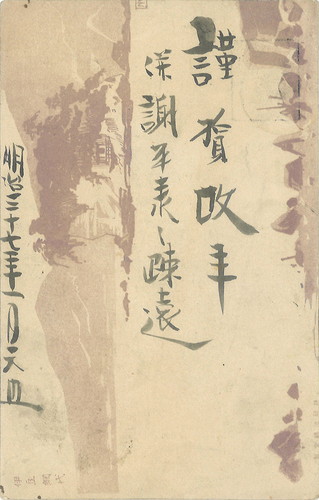 謹賀改年
併謝平素之疎遠
明治三十七年一月元旦